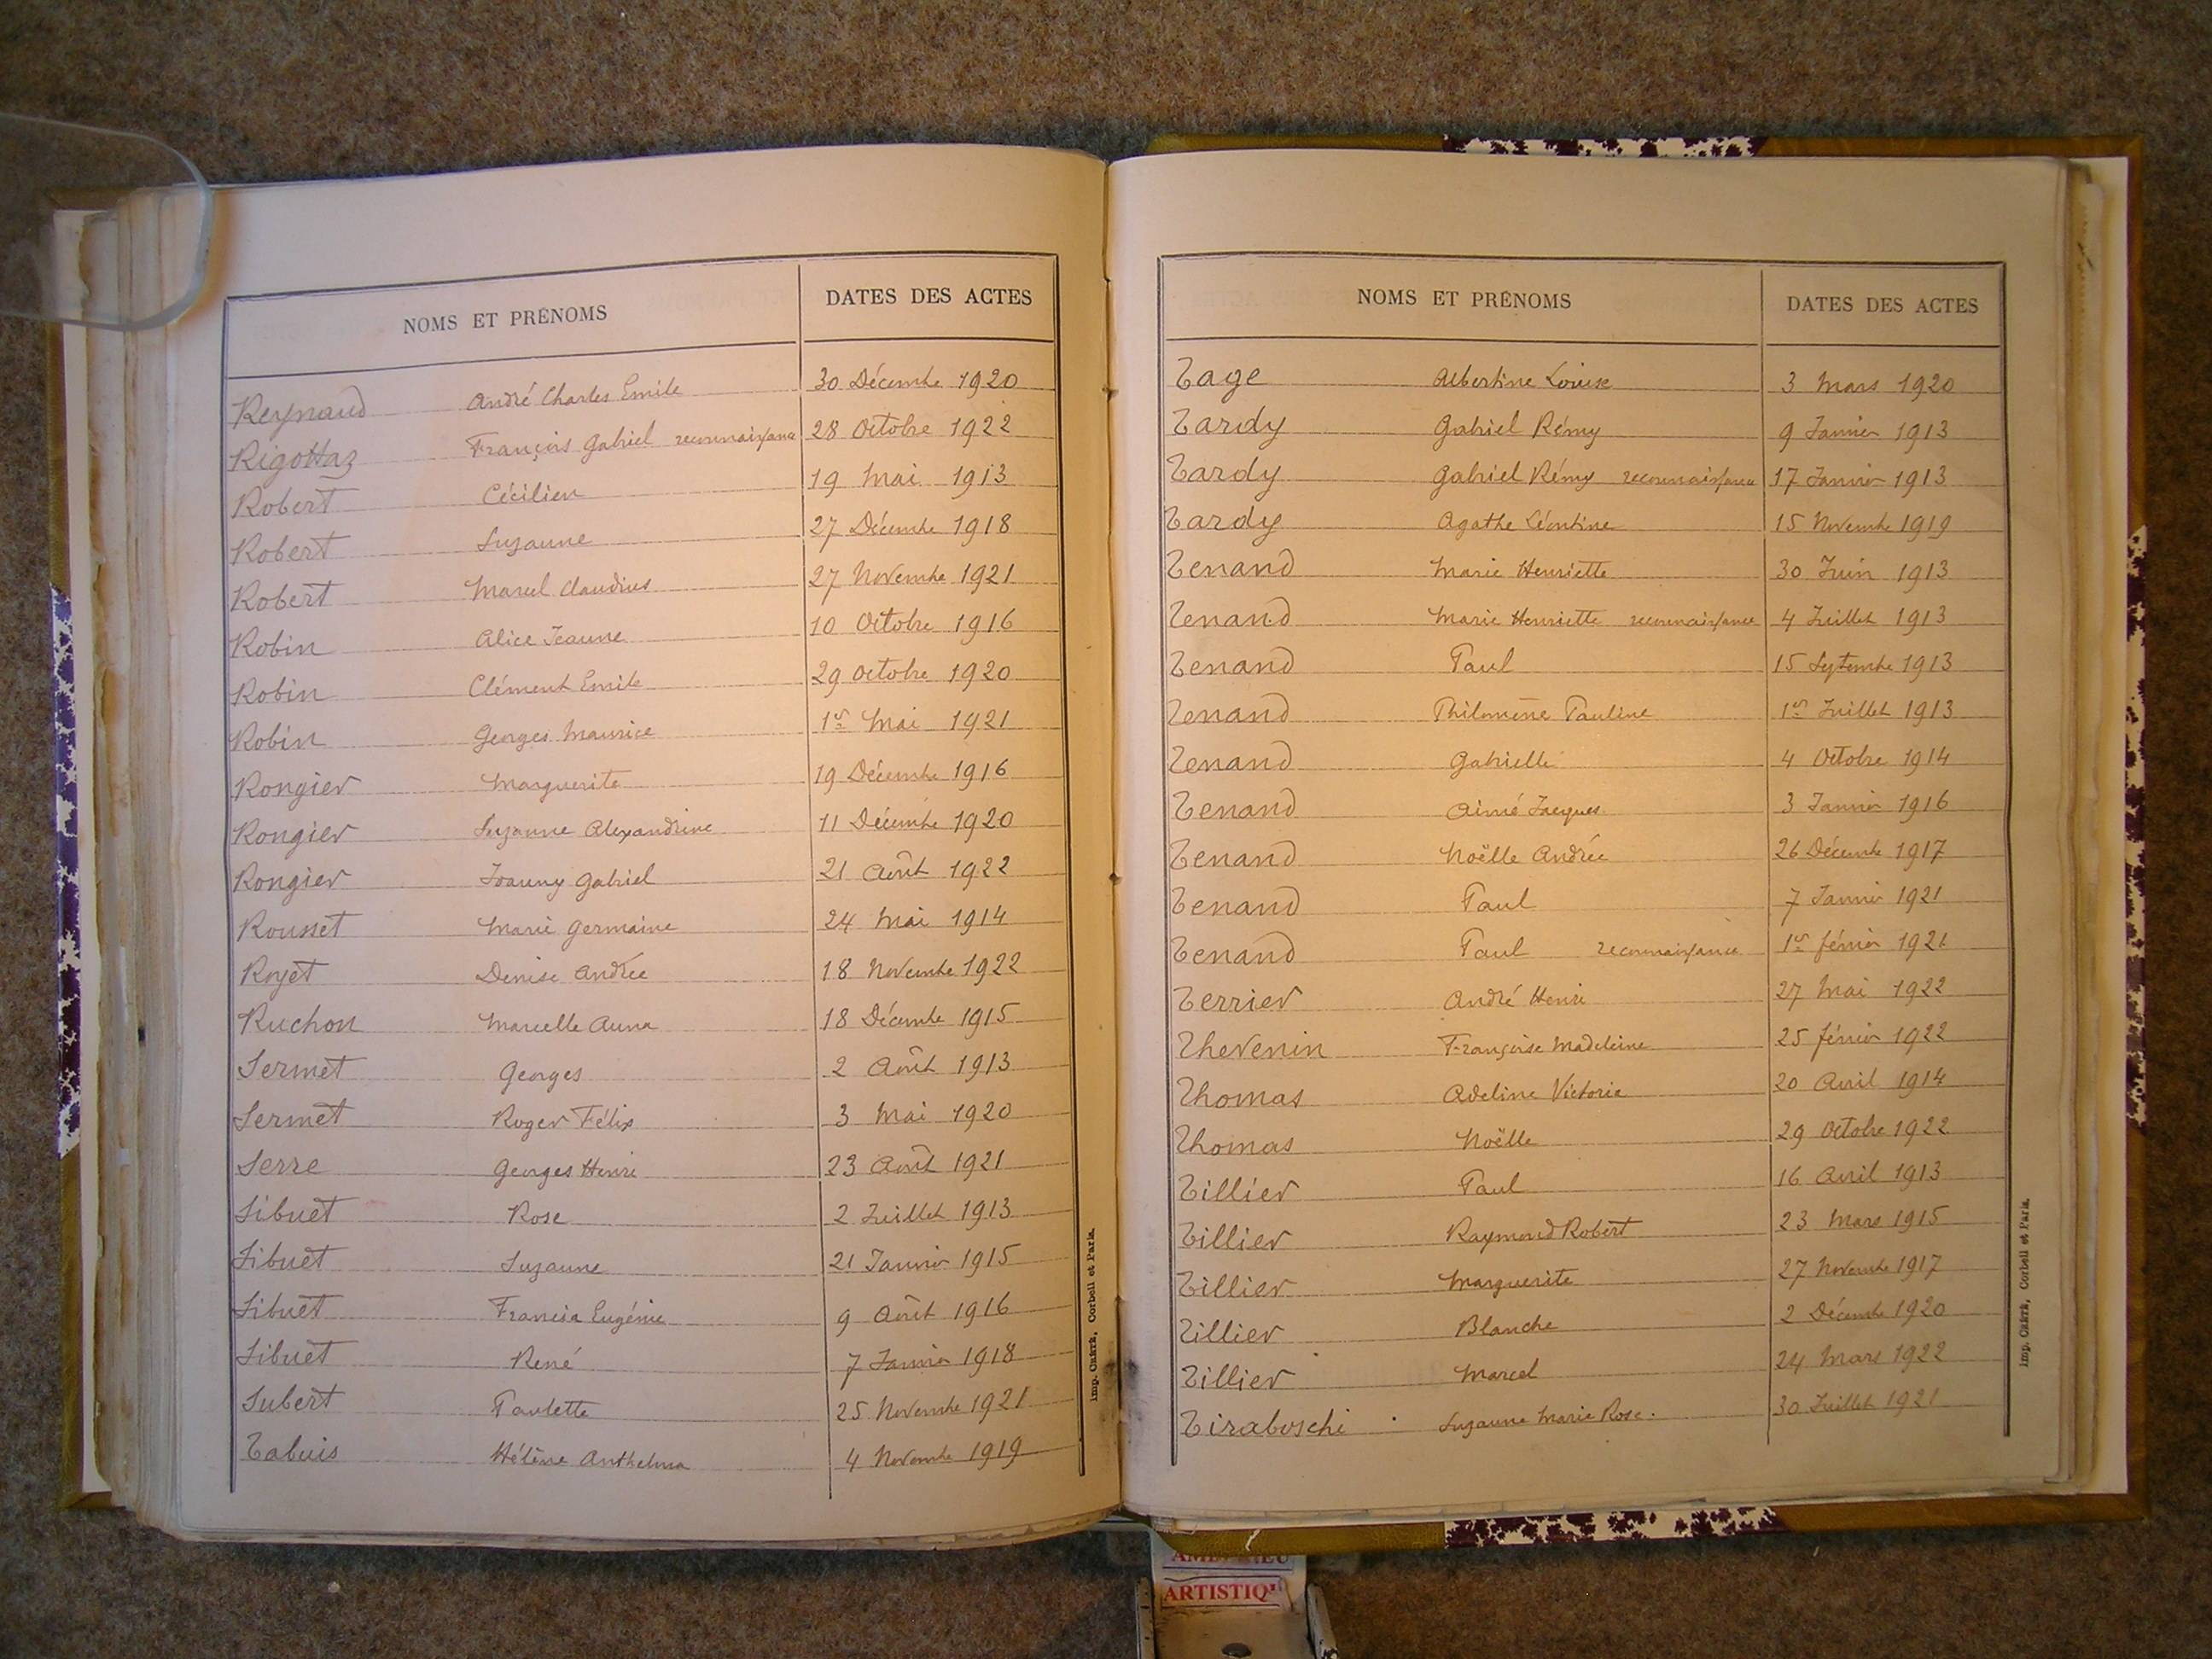 NOMS ET PRÉNOMS DATES DES ACTES
Reynaud André Charles Emile 30 Décembre 1920
Rigottaz François Gabriel reconnaissance 28 Octobre 1922
Robert Cécilien 19 Mai 1913
Robert Suzanne 27 Décembre 1918
Robert Marcel Claudius 27 Novembre 1921
Robin Alice Jeanne 10 Octobre 1916
Robin Clément Emile 29 Octobre 1920
Robin Georges Maurice 1er Mai 1921
Rongier Marguerite 19 Décembre 1916
Rongier Suzanne Alexandrine 11 Décembre 1920
Rongier Joanny Gabriel 21 Août 1922
Rousset Marie Germaine 24 Mai 1914
Royet Denise Andrée 18 Novembre 1922
Ruchon Marcelle Anna 18 Décembre 1915
Sermet Georges 2 Août 1913
Sermet Roger Félix 3 Mai 1920
Serre Georges Henri 23 Août 1921
Sibuet Rose 2 Juillet 1913
Sibuet Suzanne 21 Janvier 1915
Sibuet Francia Eugénie 9 Août 1916
Sibuet René 7 Janvier 1918
Subert Paulette 25 Novembre 1921
Tabuis Hélène Anthelma 4 Novembre 1919
Imp. Crété, Corbeil et Paris.
NOMS ET PRÉNOMS DATES DES ACTES
Tage Albertine Louise 3 Mars 1920
Tardy Gabriel Rémy 9 Janvier 1913
Tardy Gabriel Rémy reconnaissance 17 Janvier 1913
Tardy Agathe Léontine 15 Novembre 1919
Tenand Marie Henriette 30 Juin 1913
Tenand Marie Henriette reconnaissance 4 Juillet 1913
Tenand Paul 15 Septembre 1913
Tenand Philomène Pauline 1er Juillet 1913
Tenand Gabrielle 4 Octobre 1914
Tenand Aimé Jacques 3 Janvier 1916
Tenand Noëlle Andrée 26 Décembre 1917
Tenand Paul 7 Janvier 1921
Tenand Paul reconnaissance 1er février 1921
Terrier André Henri 27 Mai 1922
Thevenin Françoise Madeleine 25 février 1922
Thomas Adeline Victoria 20 Avril 1914
Thomas Noëlle 29 Octobre 1922
Tillier Paul 16 Avril 1913
Tillier Raymond Robert 23 Mars 1915
Tillier Marguerite 27 Novembre 1917
Tillier Blanche 2 Décembre 1920
Tillier Marcel 24 Mars 1922
Tiraboschi Suzanne Marie Rose 30 Juillet 1921
Imp. Crété, Corbeil et Paris.
ARTISTIQ